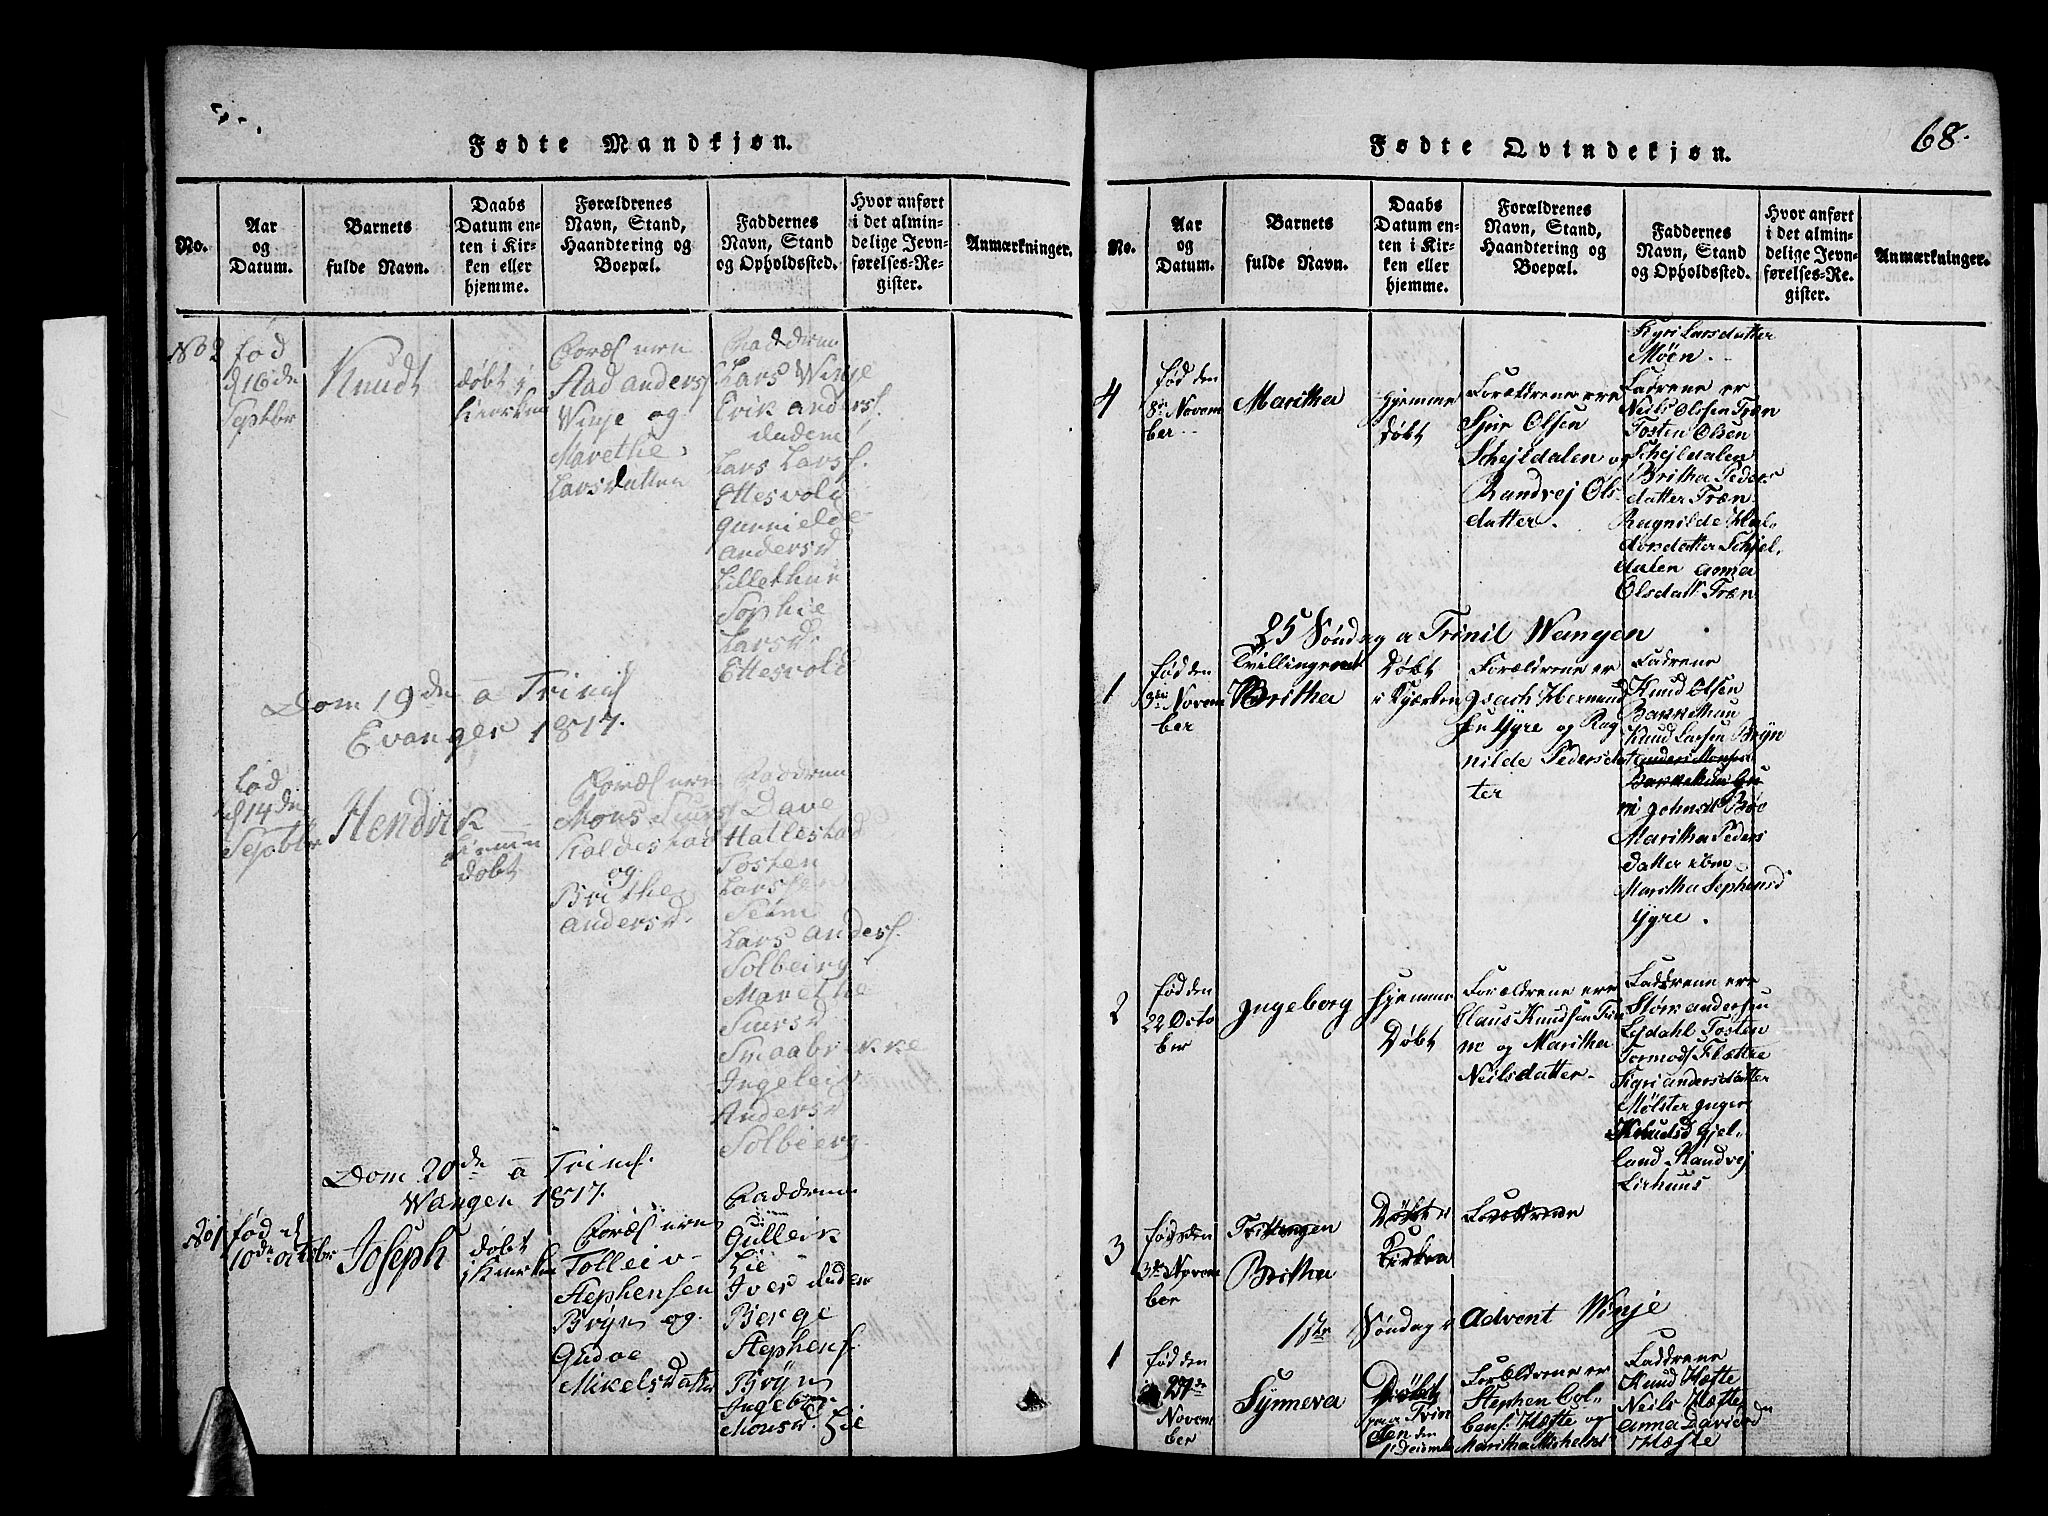 Fødte Mandkjøn.
No.
Aar
og
Datum.
Barnets
fulde Navn.
Daabs
Datum en-
ten i Kir-
ken eller
hjemme.
Forældrenes
Navn, Stand,
Haandtering og
Boepæl.
Faddernes
Navn, Stand
og Opholdssted.
Hvor anført
i det almin-
delige Jevn-
førelses-Re-
gister.
Anmærkninger.
No 2
fød
d 16de
Septbr
Knudt
døbt i
Kiærken
Foræl ere
Aad anders
Winje og
Marethe
Larsdatter
Faddrene
Lars Winje
Erik anders.
ibidem
Lars Lars.
Ettesvold
gunnilde
andersd
Lillethun
Sophie
Larsd.
Ettesvold
Dom 19de a Trinit
Evanger 1817.
fød
d 14de
Septbr
Hendrik
hiemme
døbt
Foræl ere
Mons Siurs
Kaldestad
og
Brithe
andersd.
Faddrene
Dave
Hallestad
Tosten
Larssen
Seim
Lars anders.
Solbierg
Marethe
Siursd
Smaabrekke
Ingeleiv
Andersd
Solbierg
Dom 20de a Trinit.
Wangen 1817.
No 1
fød d
10de octobr
Joseph
døbt
i Kierken
Foræl ere
Tolleiv
Stephensen
Brÿn og
Gudve
Mikelsdatter
Faddrene
Gulleik
Lie
Iver ibidem
Berge
Stephens.
Brÿn
Ingebor
Monsd. Lie
Fødte Qvindekjøn.
68.
No.
Aar
og
Datum.
Barnets
fulde Navn.
Daabs
Datum en-
ten i Kir-
ken eller
hjemme.
Forældrenes
Navn, Stand,
Haandtering og
Boepæl.
Faddernes
Navn, Stand
og Opholdssted.
Hvor anført
i det almin-
delige Jevn-
førelses-Re-
gister.
Anmærkninger.
Larsdatter
Möen.
4
fød den
8de Novem
ber
Maritha
hjemme
døbt
Forældrene ere
Sjur Olsen
Schejldalen og
Randvej Ols
datter.
Fadrene er
Neils Olssen Træn
Tosten Olsen
Schejldalen
Britha Peders
datter Træn
Ragnilde Hal,
dorsdatter Schjel,
dalen anna
Olsdatt Træn
25 Söndag a Trinit Wangen
1
fød den
3die Novem
ber
Tvillingerne
Britha
Døbt
i Kjærken
Forældrene er
Isach Hermund
sen Ygre og Rag
nilde Pedersdat
ter
Fadrene
Knud Olsen
Bakkethun
Knud Larsen Brÿn
Anders Monsen
Bakkethun Gu
ri Johnsd Böe
Maritha Peders
datter
Maritha Sephensd
Ygre.
2
fød den
22 Octo
ber
Ingeborg
Hjemme
Døbt
Forældrene ere
Claus Knudsen
og Maritha
Neilsdatter.
Faddrene ere
Störk andersen
Lydahl Tosten
Tormods Flættre
Sigri andersdatter
Mølster Inger
Knudsd Gjel,
land Randvej
Lirhuus
3
fød den
3die Novem
ber
Tvillingen
Britha
Døbt i
Kirken
Forældrene
1ste Söndag i Advent Winje
1
fød den
27de
Novem
ber
Synneva
Døbt
paa
den
1 Decembr
Forældrene er
Stephen Col,
bens. Hæfte og
Maritha Michelsd
Faddrene
Knud Hæfte
Neils Hæfte
anna Davidsd
Hæfte